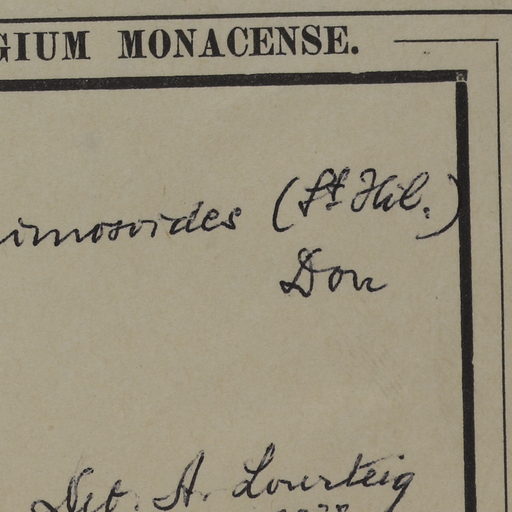 GIUM MONACENSE.
imosoides (St Hil.)
Don
Det. A. Lourteig